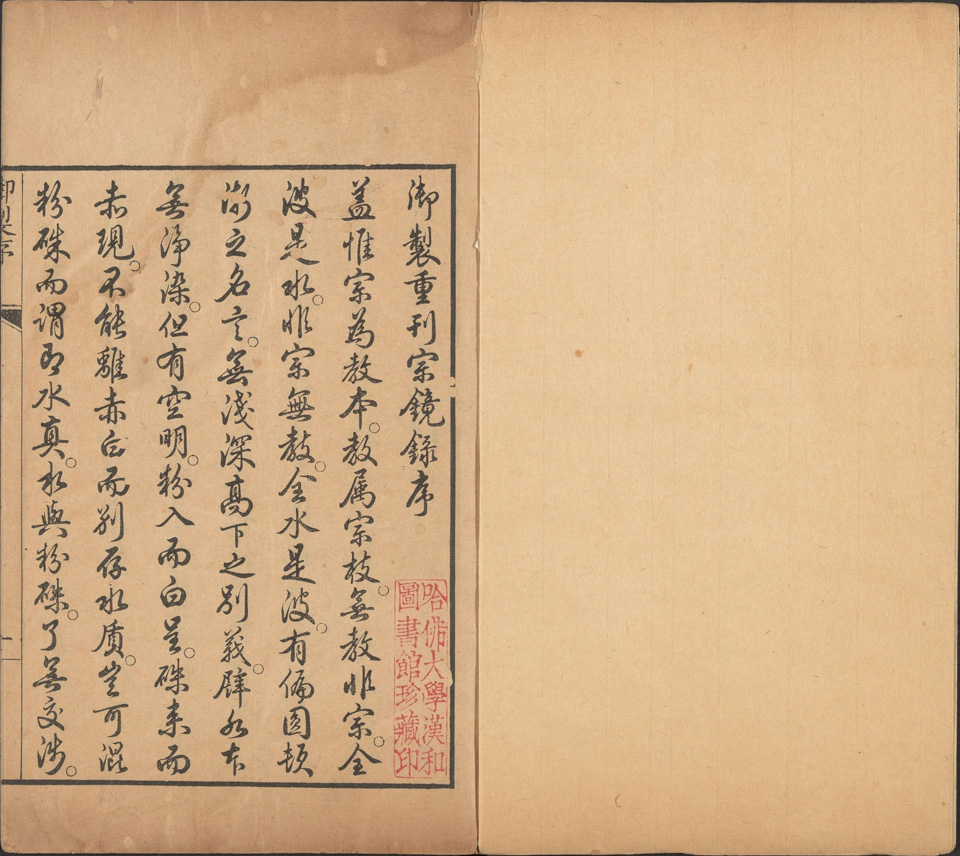 御製重刊宗鏡錄序
蓋惟宗為教本。教属宗枝。無教非宗。全
波是水。非宗無教。全水是波。有偏圆頓
漸之名言。無淺深高下之別義。譬水本
無淨染。但有空明。粉入而白呈。硃来而
赤現。不能離赤白而别存水质。豈可混
粉硃而謂即水真。水與粉硃。了無交涉。
哈佛大學漢和
圖書館珍藏印